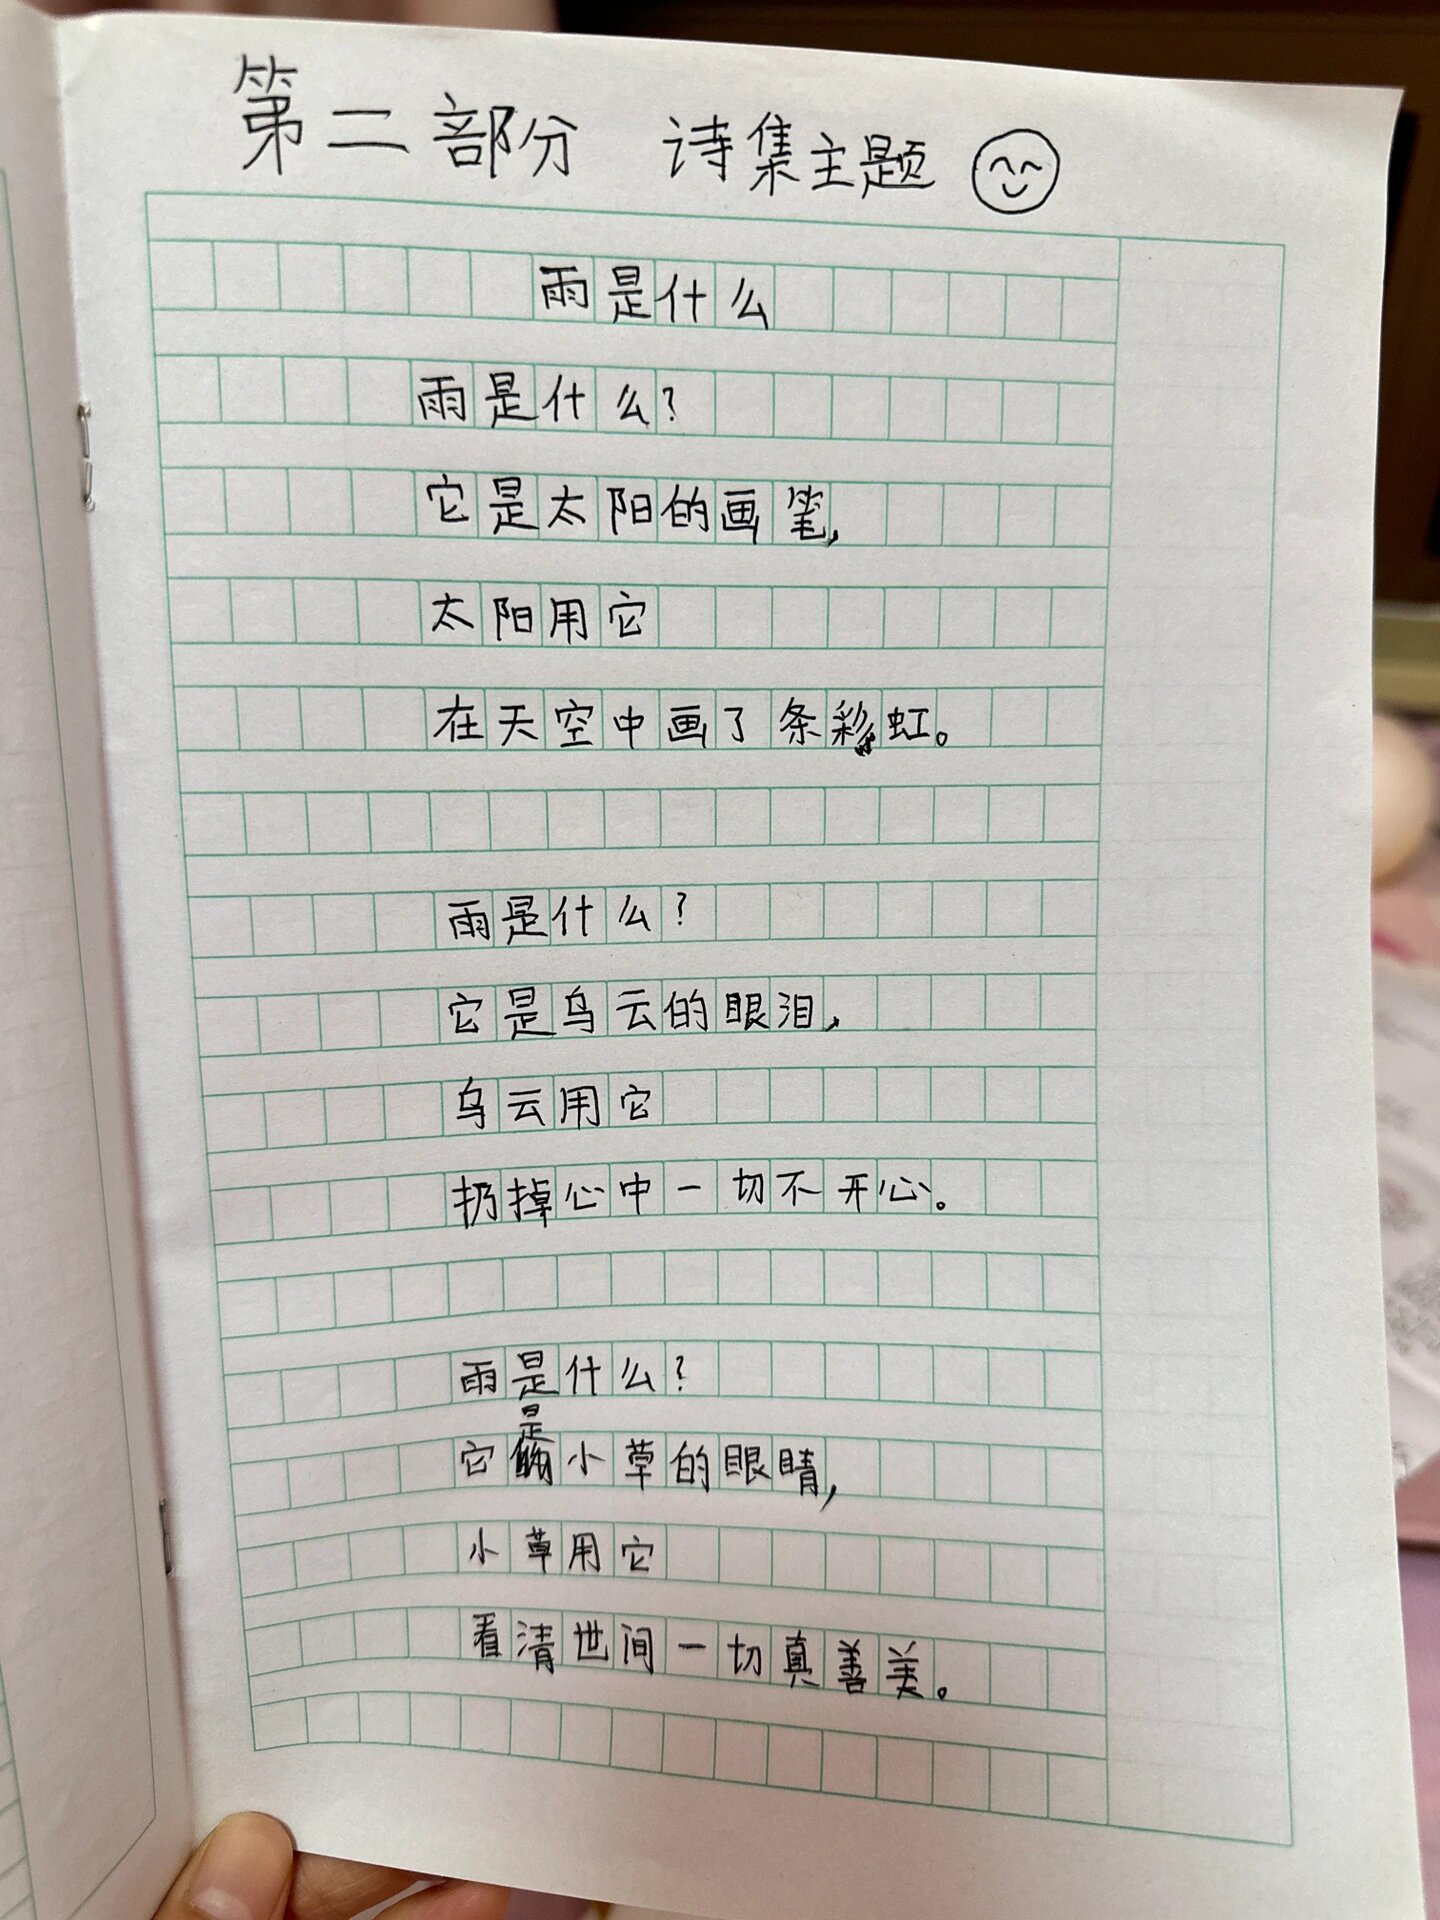 第二部分 诗集主题
雨是什么
雨是什么?
它是太阳的画笔,
太阳用它
在天空中画了条彩虹。
雨是什么?
它是乌云的眼泪,
乌云用它
扔掉心中一切不开心。
雨是什么?
它是小草的眼睛,
小草用它
看清世间一切真善美。